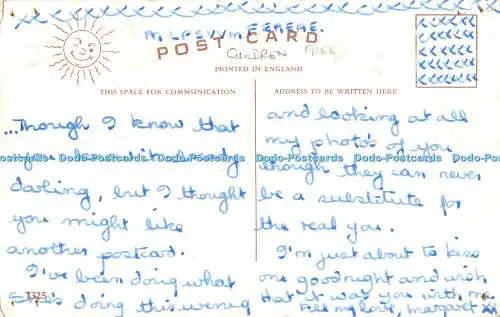 POST CARD
CHILDREN FREE
PRINTED IN ENGLAND
THIS SPACE FOR COMMUNICATION
ADDRESS TO BE WRITTEN HERE
...Though I know that
darling, but I thought
you might like
another postcard.
I've been doing what
she's doing this
T325
and looking at all
my photo's of you
though they can never
be a substitute for
the real you.
I'm just about to kiss
one goodnight and wish
that it was you with me
All my love, Margaret xx
Dodo-Postcards Dodo-Postcards Dodo-Postcards Dodo-Postcards Dodo-Postcards Dodo-Postcards